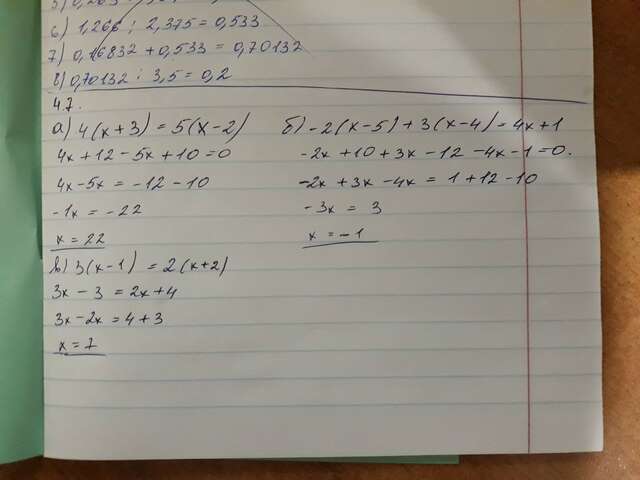 6) 1,266 : 2,375 = 0,533
7) 0,16832 + 0,533 = 0,70132
8) 0,70132 : 3,5 = 0,2
47.
а) 4(x+3) = 5(x-2)
4x+12-5x+10=0
4x-5x = -12-10
-1x = -22
x = 22
б) -2(x-5)+3(x-4)=4x+1
-2x+10+3x-12-4x-1=0.
-2x+3x-4x = 1+12-10
-3x = 3
x = -1
в) 3(x-1) = 2(x+2)
3x-3 = 2x+4
3x-2x = 4+3
x = 7